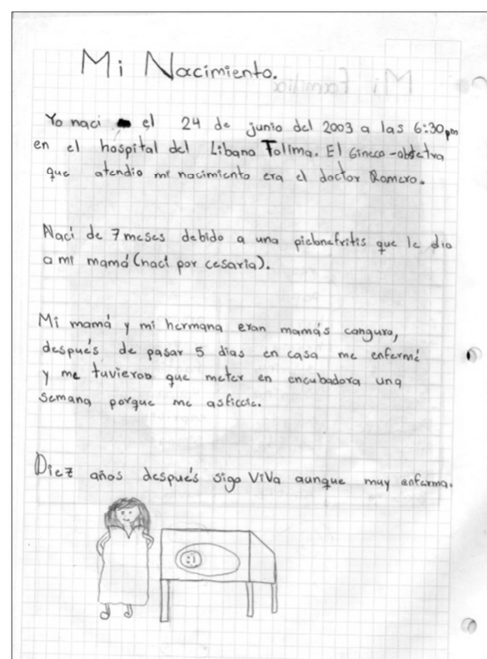 Mi Nacimiento.
Yo naci el 24 de junio del 2003 a las 6:30pm
en el hospital del Libano Tolima. El Gineco-obstetra
que atendio mi nacimiento era el doctor Romero.
Naci de 7 meses debido a una pielonefritis que le dio
a mi mamá (naci por cesaria).
Mi mamá y mi hermana eran mamás canguro,
después de pasar 5 dias en casa me enfermé
y me tuvieron que meter en encubadora una
semana porque me asficcie.
Diez años después sigo ViVa aunque muy enferma.